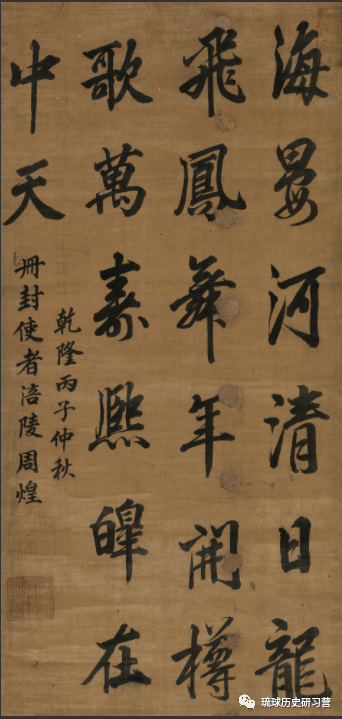 海晏河清日龍
飛鳳舞年開樽
歌萬壽熙皞在
中天
乾隆丙子仲秋
冊封使者涪陵周煌
琉球历史研习营